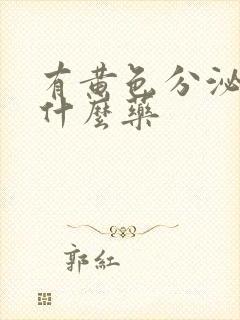 有黄色分泌
什麼藥
郭紅